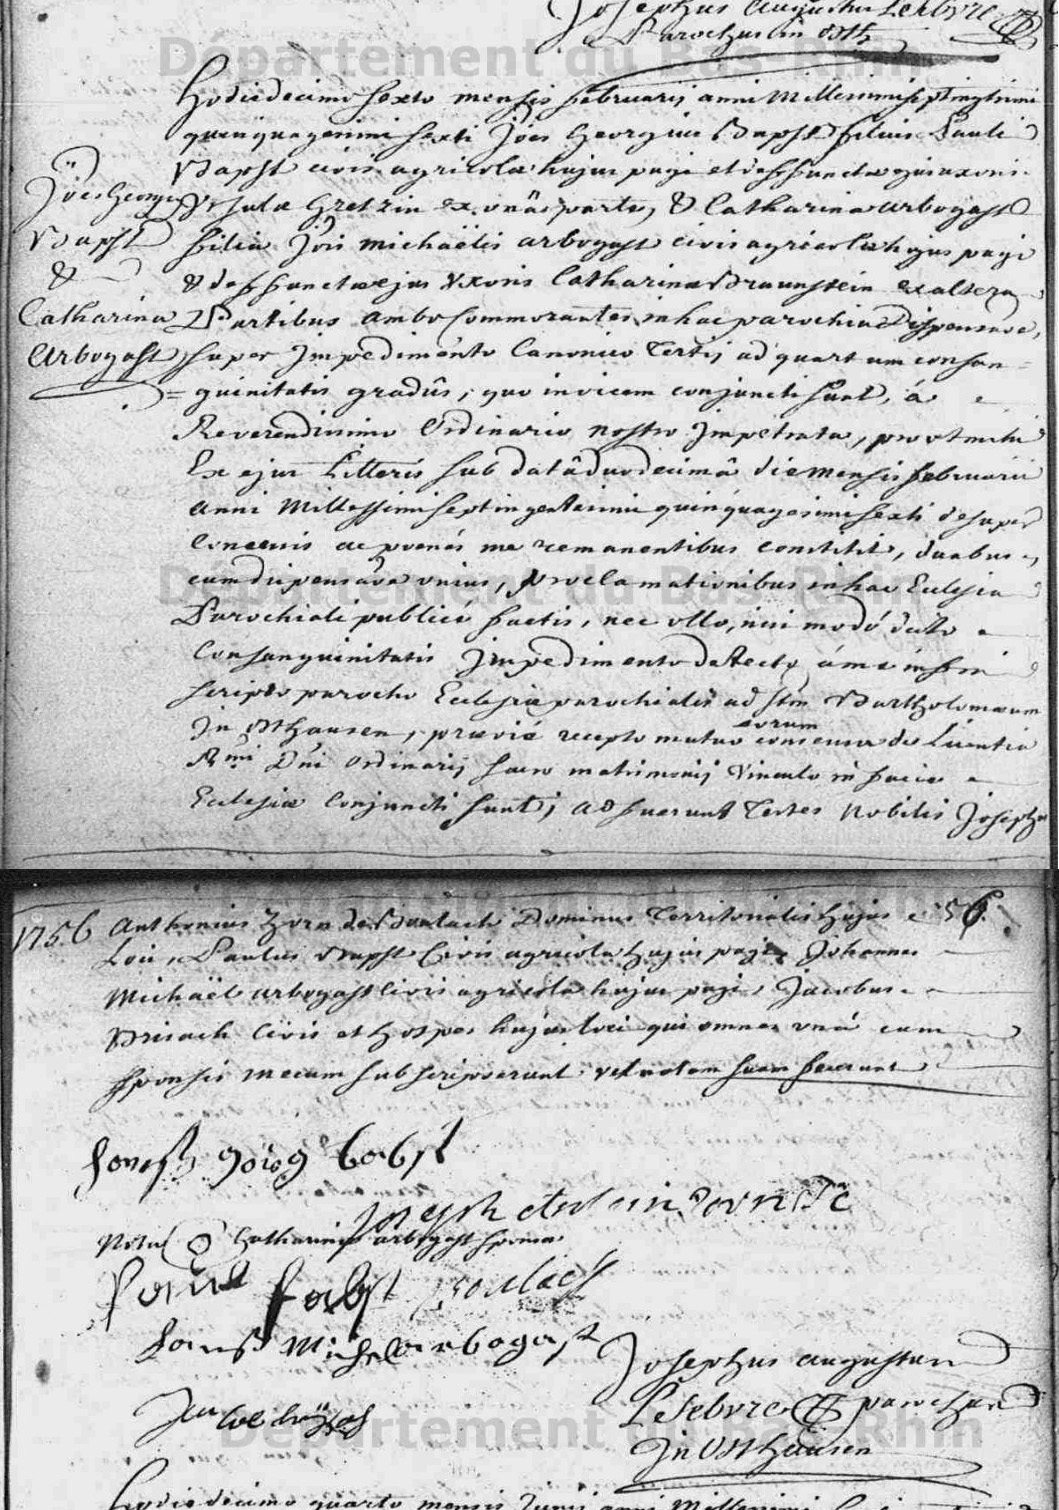 Josephus Augustus Lefebvre
Parochus in Osth
Département du Bas-Rhin
Hodie decimo sexto mensis februarij anni millesimi septingentesimi
quinquagesimi sexti Jöes Georgius Bapst filius Pauli
Bapst civis agricolae hujus pagi et deffunctae ejus uxoris
Jöes George
Ursulae Gretzin ex unâ parte, & Catharina Arbogast
Bapst
filia Jöis Michaëlis Arbogast civis agricolae hujus pagi
&
& deffunctae ejus uxoris Catharinae Braunstein ex altera
Catharina
Partibus ambo commorantes in hac parochia Dispensatione,
Arbogast
super Impedimento Canonico Tertij ad quartum consan=
=guinitatis gradûs, quo invicem conjuncti sunt, á
Reverendissimo Ordinario nostro Impetrata, prout mihi
Ex ejus Litteris sub datâ duodecimâ die mensis februarii
anni Millessimi septingentesimi quinquagesimi sexti desuper
concessis ac penés me remanentibus constitit, duabus
cum dispensatione unius, proclamationibus in hac Eclesia
Département du Bas-Rhin
Parochiali publicé factis, nec ullo, nisi modó dicto
Consanguinitatis Impedimento detecto á me infra
scripto parocho Eclesiae parochialis ad Stm Bartholomaeum
In Osthausen, praevié recepto mutuo eorum consensu de Licentia
Rmi Dni Ordinarij sacro matrimonij vinculo in facie
Eclesiae Conjuncti sunt, adfuerunt Testes Nobilis Josephus
1756 Anthonius Zorn de Boulach Dominus Territorialis hujus 56.
Loci, Paulus Bapst Civis agricola hujus pagi, Johannes
Michaël Arbogast civis agricola hujus pagi, Jacobus
Brisach Civis et hospes hujus loci qui omnes unâ cum
sponsis mecum subscripserunt vel notam suam fecerunt
hanß görg babst
Joseph Antoin Zorn de
Nota Catharinae arbogast sponsae
Paulß Pabst boulach
hanß Michel arbogast
Josephus augustus
Lefebvre parochus
In Osthausen
Département du Bas-Rhin
Hodie decimo quarto mensis Junij anni Millesimi